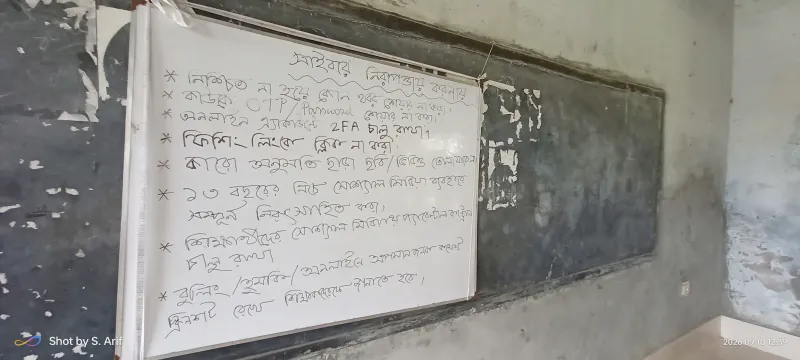 সাইবার নিরাপত্তায় করণীয়
* নিশ্চিত না হয়ে কোন খবর শেয়ার না করা।
* কাউকে OTP/Password শেয়ার না করা।
* অনলাইন এ্যাকাউন্টে 2FA চালু রাখা।
* ফিশিং লিংকে ক্লিক না করা
* কারো অনুমতি ছাড়া ছবি/ভিডিও
* ১৩ বছরের নিচে সোশ্যাল মিডিয়া ব্যবহারে
সম্পূর্ণ নিরুৎসাহিত করা।
* শিক্ষার্থীদের সোশ্যাল মিডিয়ায় প্যারেন্টাল কন্ট্রোল
চালু রাখা
* বুলিং/হুমকি/অনলাইনে
স্ক্রিনশট রেখে শিক্ষকদেরকে জানাতে হবে।
Shot by S. Arif